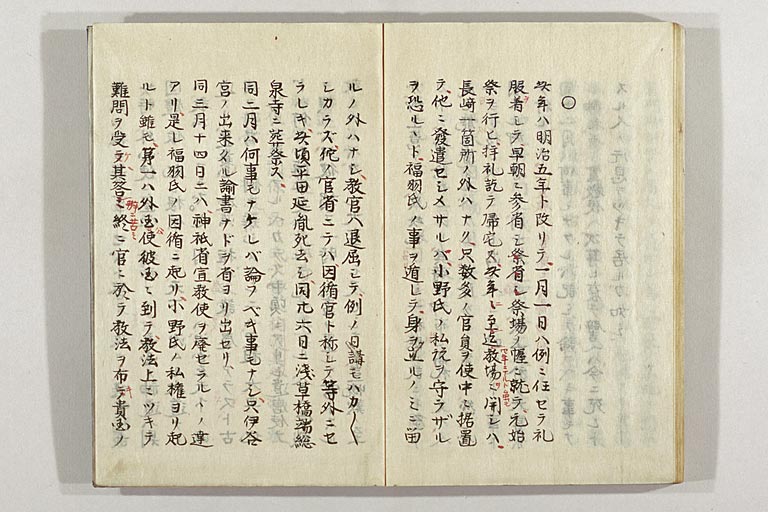 ○
玆年ハ明治五年ト改リテ一月一日ハ例ニ任セテ礼
服着シテ早朝ニ参省シ祭省シ祭場ノ薩ニ就テ元始
祭ヲ行ヒ拝礼訖テ帰宅ス玆年ニ至迄教場ヲ開シハ
長崎一箇所ノ外ハナク只数多ノ官員ヲ使中ニ据置
テ他ニ發遣セシメサルハ小野氏ノ私説ヲ守ラザル
ヲ恐ルヽト福羽氏ノ事ヲ道レテ身ヲ遁ルノミニ畄
ルノ外ハナシ教官ハ退屈シテ例ノ日講モハカ〱
シカラズ他ノ官省ニテハ因循官ト称シテ等外ニセ
ラレキ玆頃平田延胤死去シ同廿六日ニ浅草橋端総
泉寺ニ葬祭ス
同二月ハ何事モナケレバ論ヲベキ事モナシ只伊谷
宮ノ出来タル諭書ナドヲ省ヨリ出セリ
同三月十四日ニハ神祇省宣教使ヲ廃セラルヽノ達
アリ是レ福羽氏ノ因循ニ起リ小野氏ノ私権ヨリ起
ルト雖モ第一ハ外国公使彼国ニ到テ教法上ニツキテ
難問ヲ受テ其答ニ終ニ官ニ於テ教法ヲ布テ貴国ノ